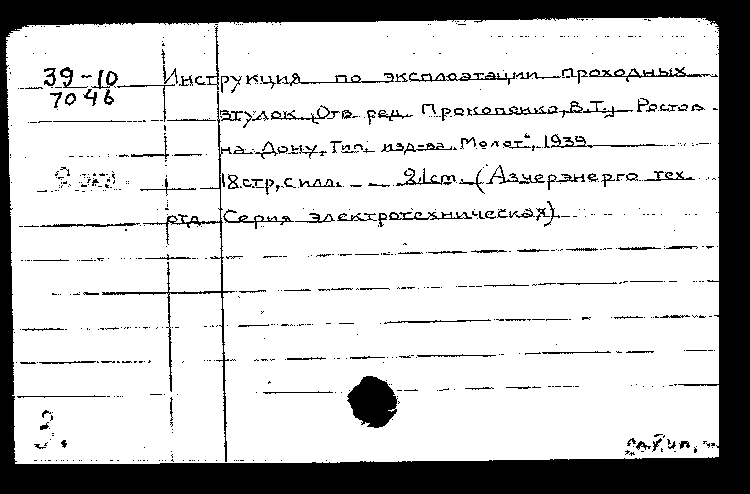 39-10
7046
Инструкция по эксплоатации проходных
втулок. Отв. ред. Прокопенко, В.Т., Ростов
на-Дону, Тип. изд-ва „Молот“, 1939.
18 стр, с илл. 21 cm. (Азчерэнерго тех.
отд. Серия электротехническая)
2 экз.
3.